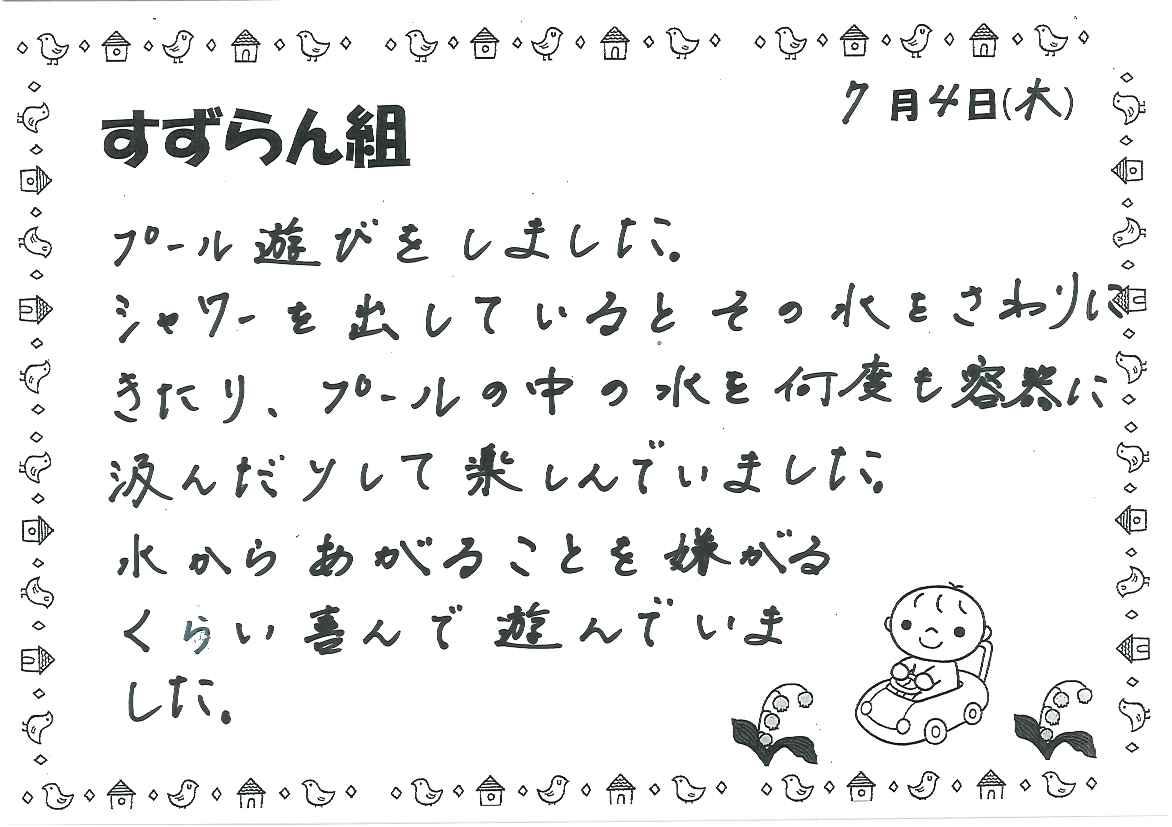 7月4日(木)
すずらん組
プール遊びをしました。
シャワーを出しているとその水をさわりに
きたり、プールの中の水を何度も容器に
汲んだりして楽しんでいました。
水からあがることを嫌がる
くらい喜んで遊んでいま
した。